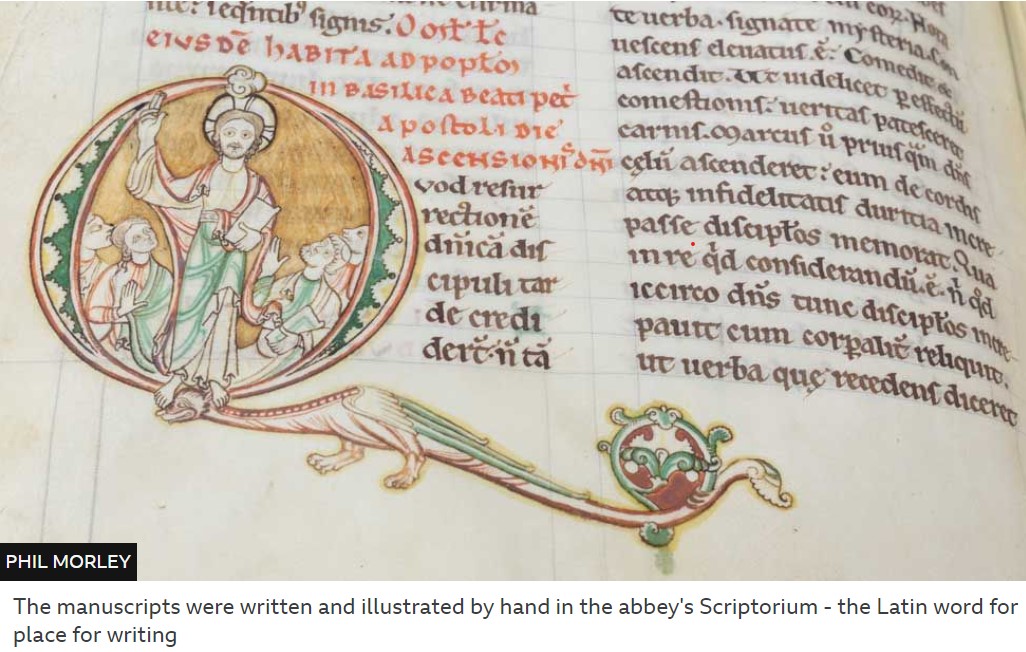 signis.
EIUS DĒ HABITA AD POPŁO
IN BASILICA BEATI PET̄
APOSTOLI DIE
ASCENSIONIS DN̄I
Quod resur
rectionē
dn̄icā dis
cipuli tar
de credi
der̄t. n̄ tā
te uerba. signate mysteria. Con
uescens eleuatus.ē. Comedit &
ascendit. Ut uidelicet p effectū
comestionis: ueritas patesceret
carnis. Marcus ů priusquā dn̄s
cęlū ascenderet: eum de cordis
atq; infidelitatis duricia incre
passe discipłos memorat. Qua
in re qd̄ considerandū.ē. n̄ qd̄
iccirco dn̄s tunc discipłos incre
pauit cum corꝑalit̄ reliquit.
ut uerba quę recedens diceret
PHIL MORLEY
The manuscripts were written and illustrated by hand in the abbey's Scriptorium - the Latin word for
place for writing